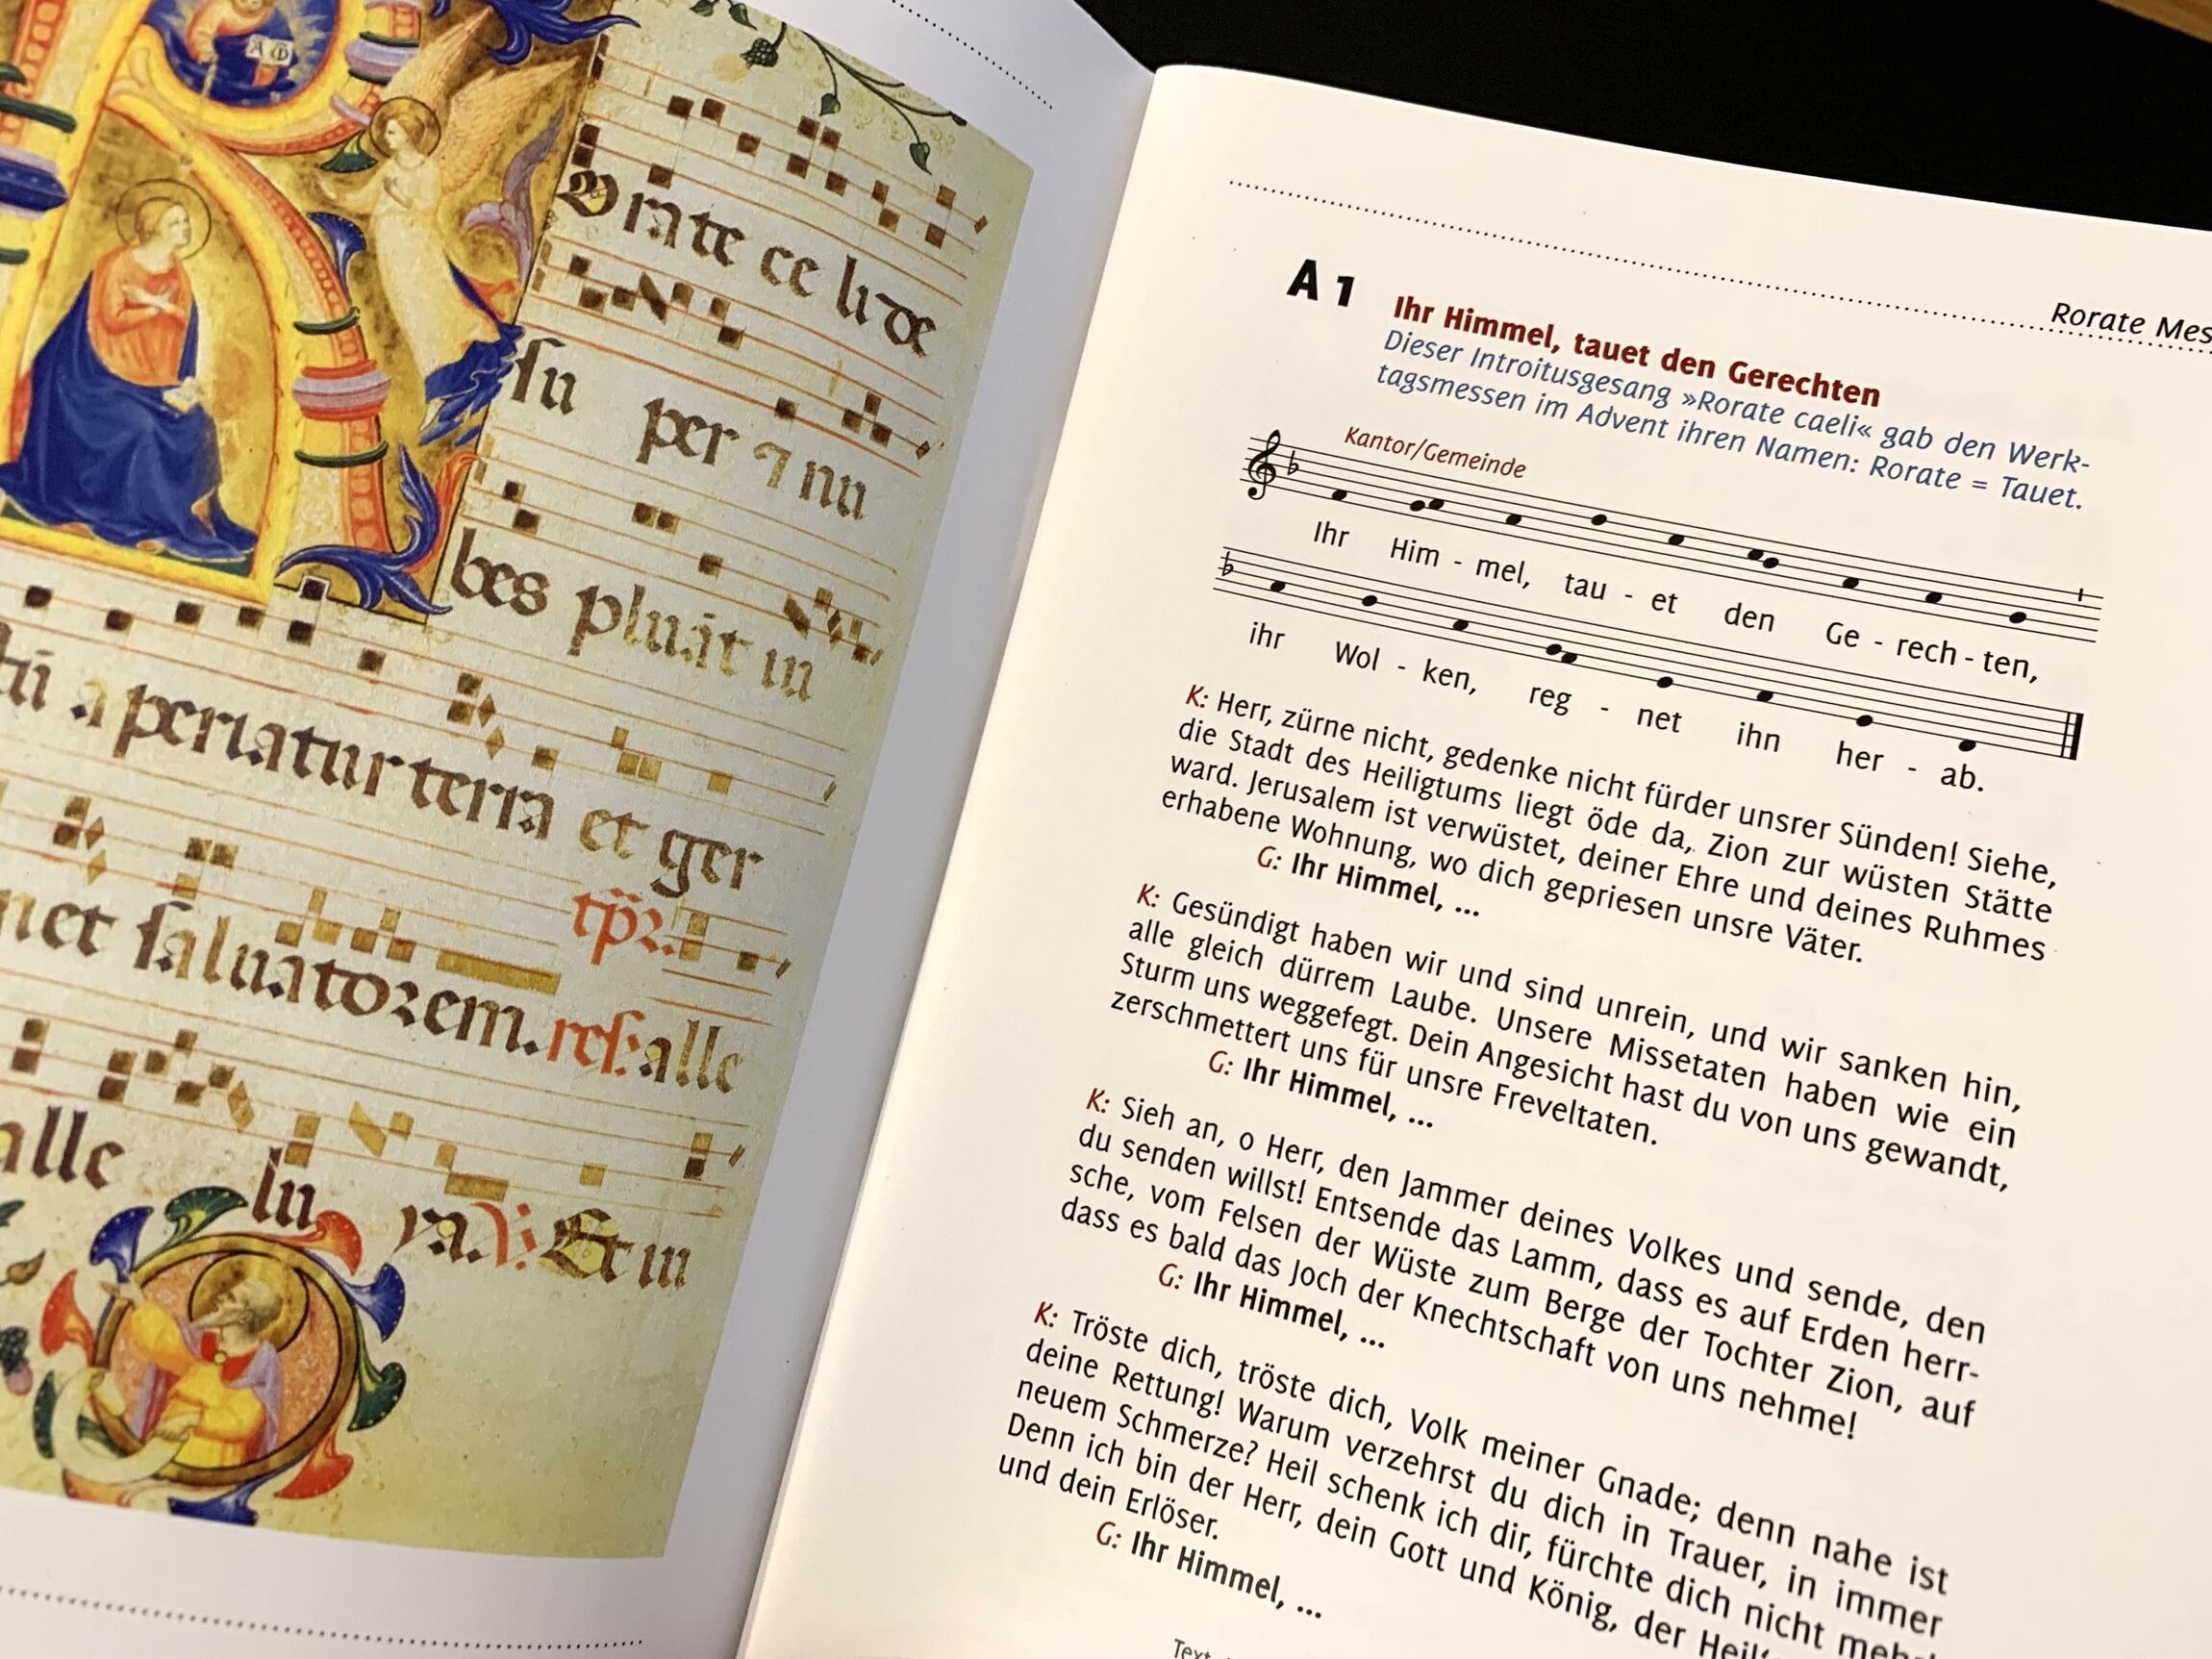 A Ω
orate celi de
su per ⁊ nu
bes pluat in
sti a periatur terra et ger
inet saluatorem. res: alle
tp̄r.
alle lu ya. V: Et in
Rorate Mes
A 1
Ihr Himmel, tauet den Gerechten
Dieser Introitusgesang »Rorate caeli« gab den Werk-
tagsmessen im Advent ihren Namen: Rorate = Tauet.
Kantor/Gemeinde
Ihr Him - mel, tau - et den Ge - rech - ten,
ihr Wol - ken, reg - net ihn her - ab.
K: Herr, zürne nicht, gedenke nicht fürder unsrer Sünden! Siehe,
die Stadt des Heiligtums liegt öde da, Zion zur wüsten Stätte
ward. Jerusalem ist verwüstet, deiner Ehre und deines Ruhmes
erhabene Wohnung, wo dich gepriesen unsre Väter.
G: Ihr Himmel, ...
K: Gesündigt haben wir und sind unrein, und wir sanken hin,
alle gleich dürrem Laube. Unsere Missetaten haben wie ein
Sturm uns weggefegt. Dein Angesicht hast du von uns gewandt,
zerschmettert uns für unsre Freveltaten.
G: Ihr Himmel, ...
K: Sieh an, o Herr, den Jammer deines Volkes und sende, den
du senden willst! Entsende das Lamm, dass es auf Erden herr-
sche, vom Felsen der Wüste zum Berge der Tochter Zion, auf
dass es bald das Joch der Knechtschaft von uns nehme!
G: Ihr Himmel, ...
K: Tröste dich, tröste dich, Volk meiner Gnade; denn nahe ist
deine Rettung! Warum verzehrst du dich in Trauer, in immer
neuem Schmerze? Heil schenk ich dir, fürchte dich nicht mehr
Denn ich bin der Herr, dein Gott und König, der Heil
und dein Erlöser.
G: Ihr Himmel, ...
Text